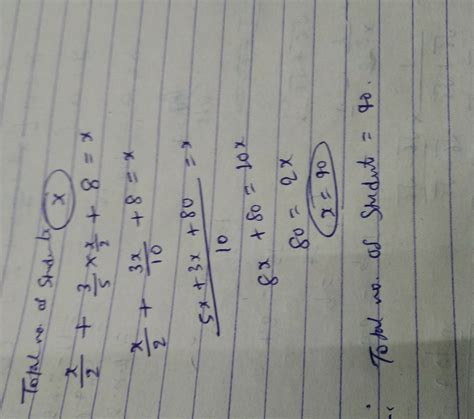 Total no. of Students (x)
x/2 + 3/5 × x/2 + 8 = x
x/2 + 3x/10 + 8 = x
(5x + 3x + 80)/10 = x
8x + 80 = 10x
80 = 2x
x = 40
Total no. of Student = 40.